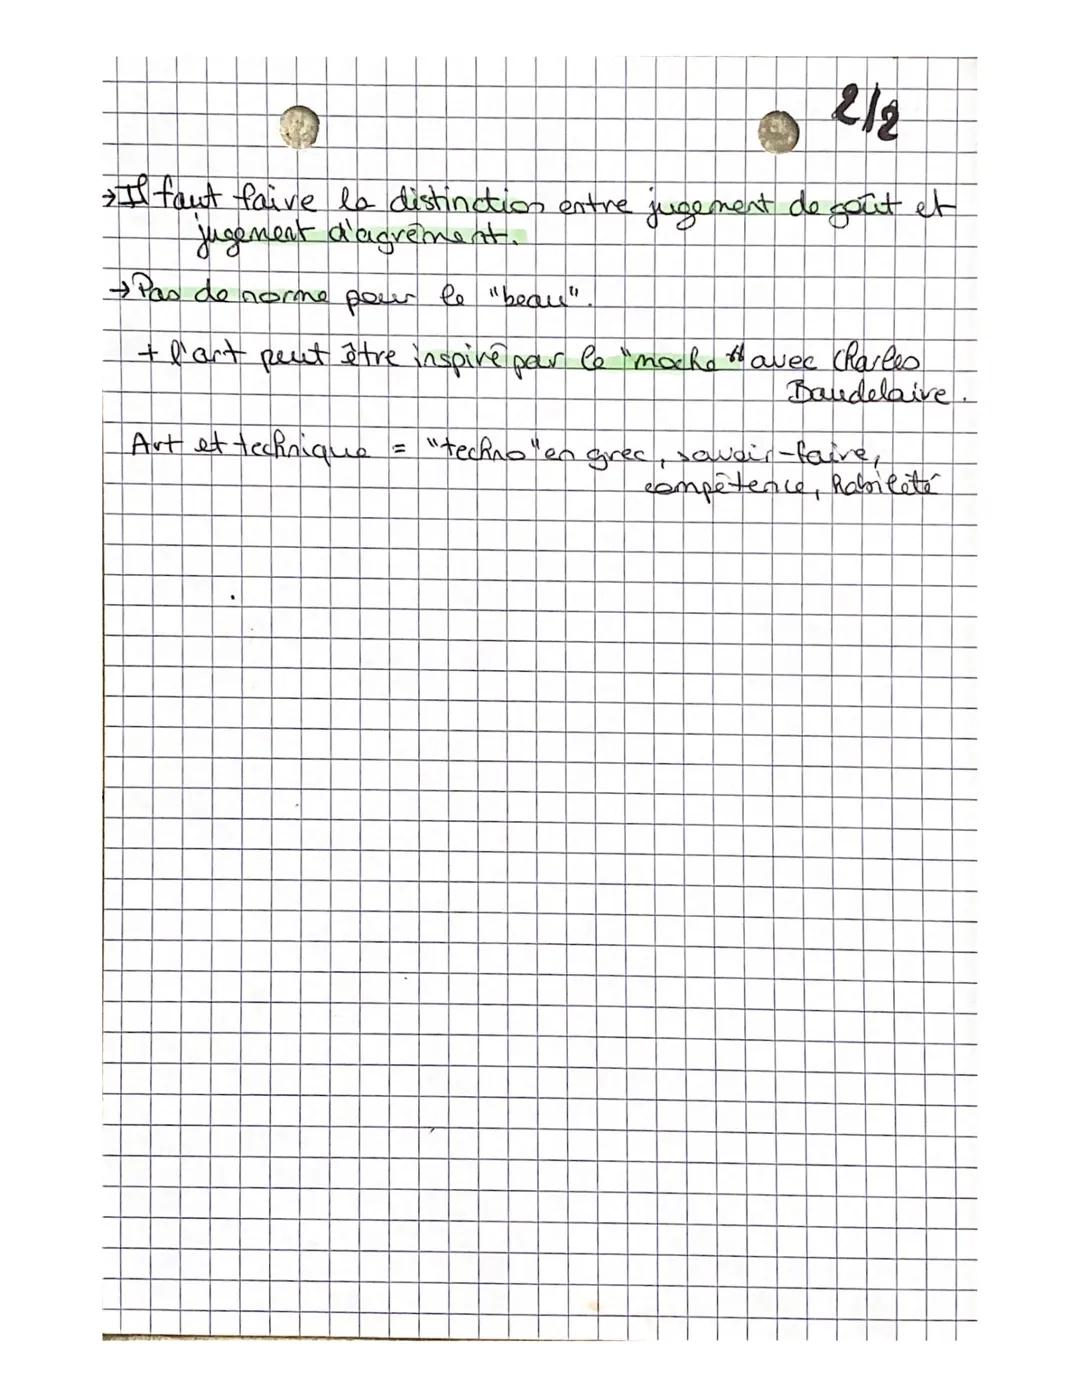 2/2
→ Il faut faire la distinction entre jugement de goût et
jugement d'agrément.
→ Pas de norme pour le "beau".
+ l'art peut être inspiré par le "moche" avec Charles
Baudelaire.
Art et technique = "techno" en grec, savoir-faire,
compétence, habileté